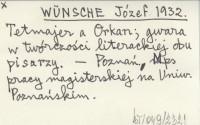 WÜNSCHE Józef. 1932.
Tetmajer a Orkan; gwara
w twórczości literackiej obu
pisarzy. — Poznań, Mps
pracy magisterskiej na Uniw.
Poznańskim.